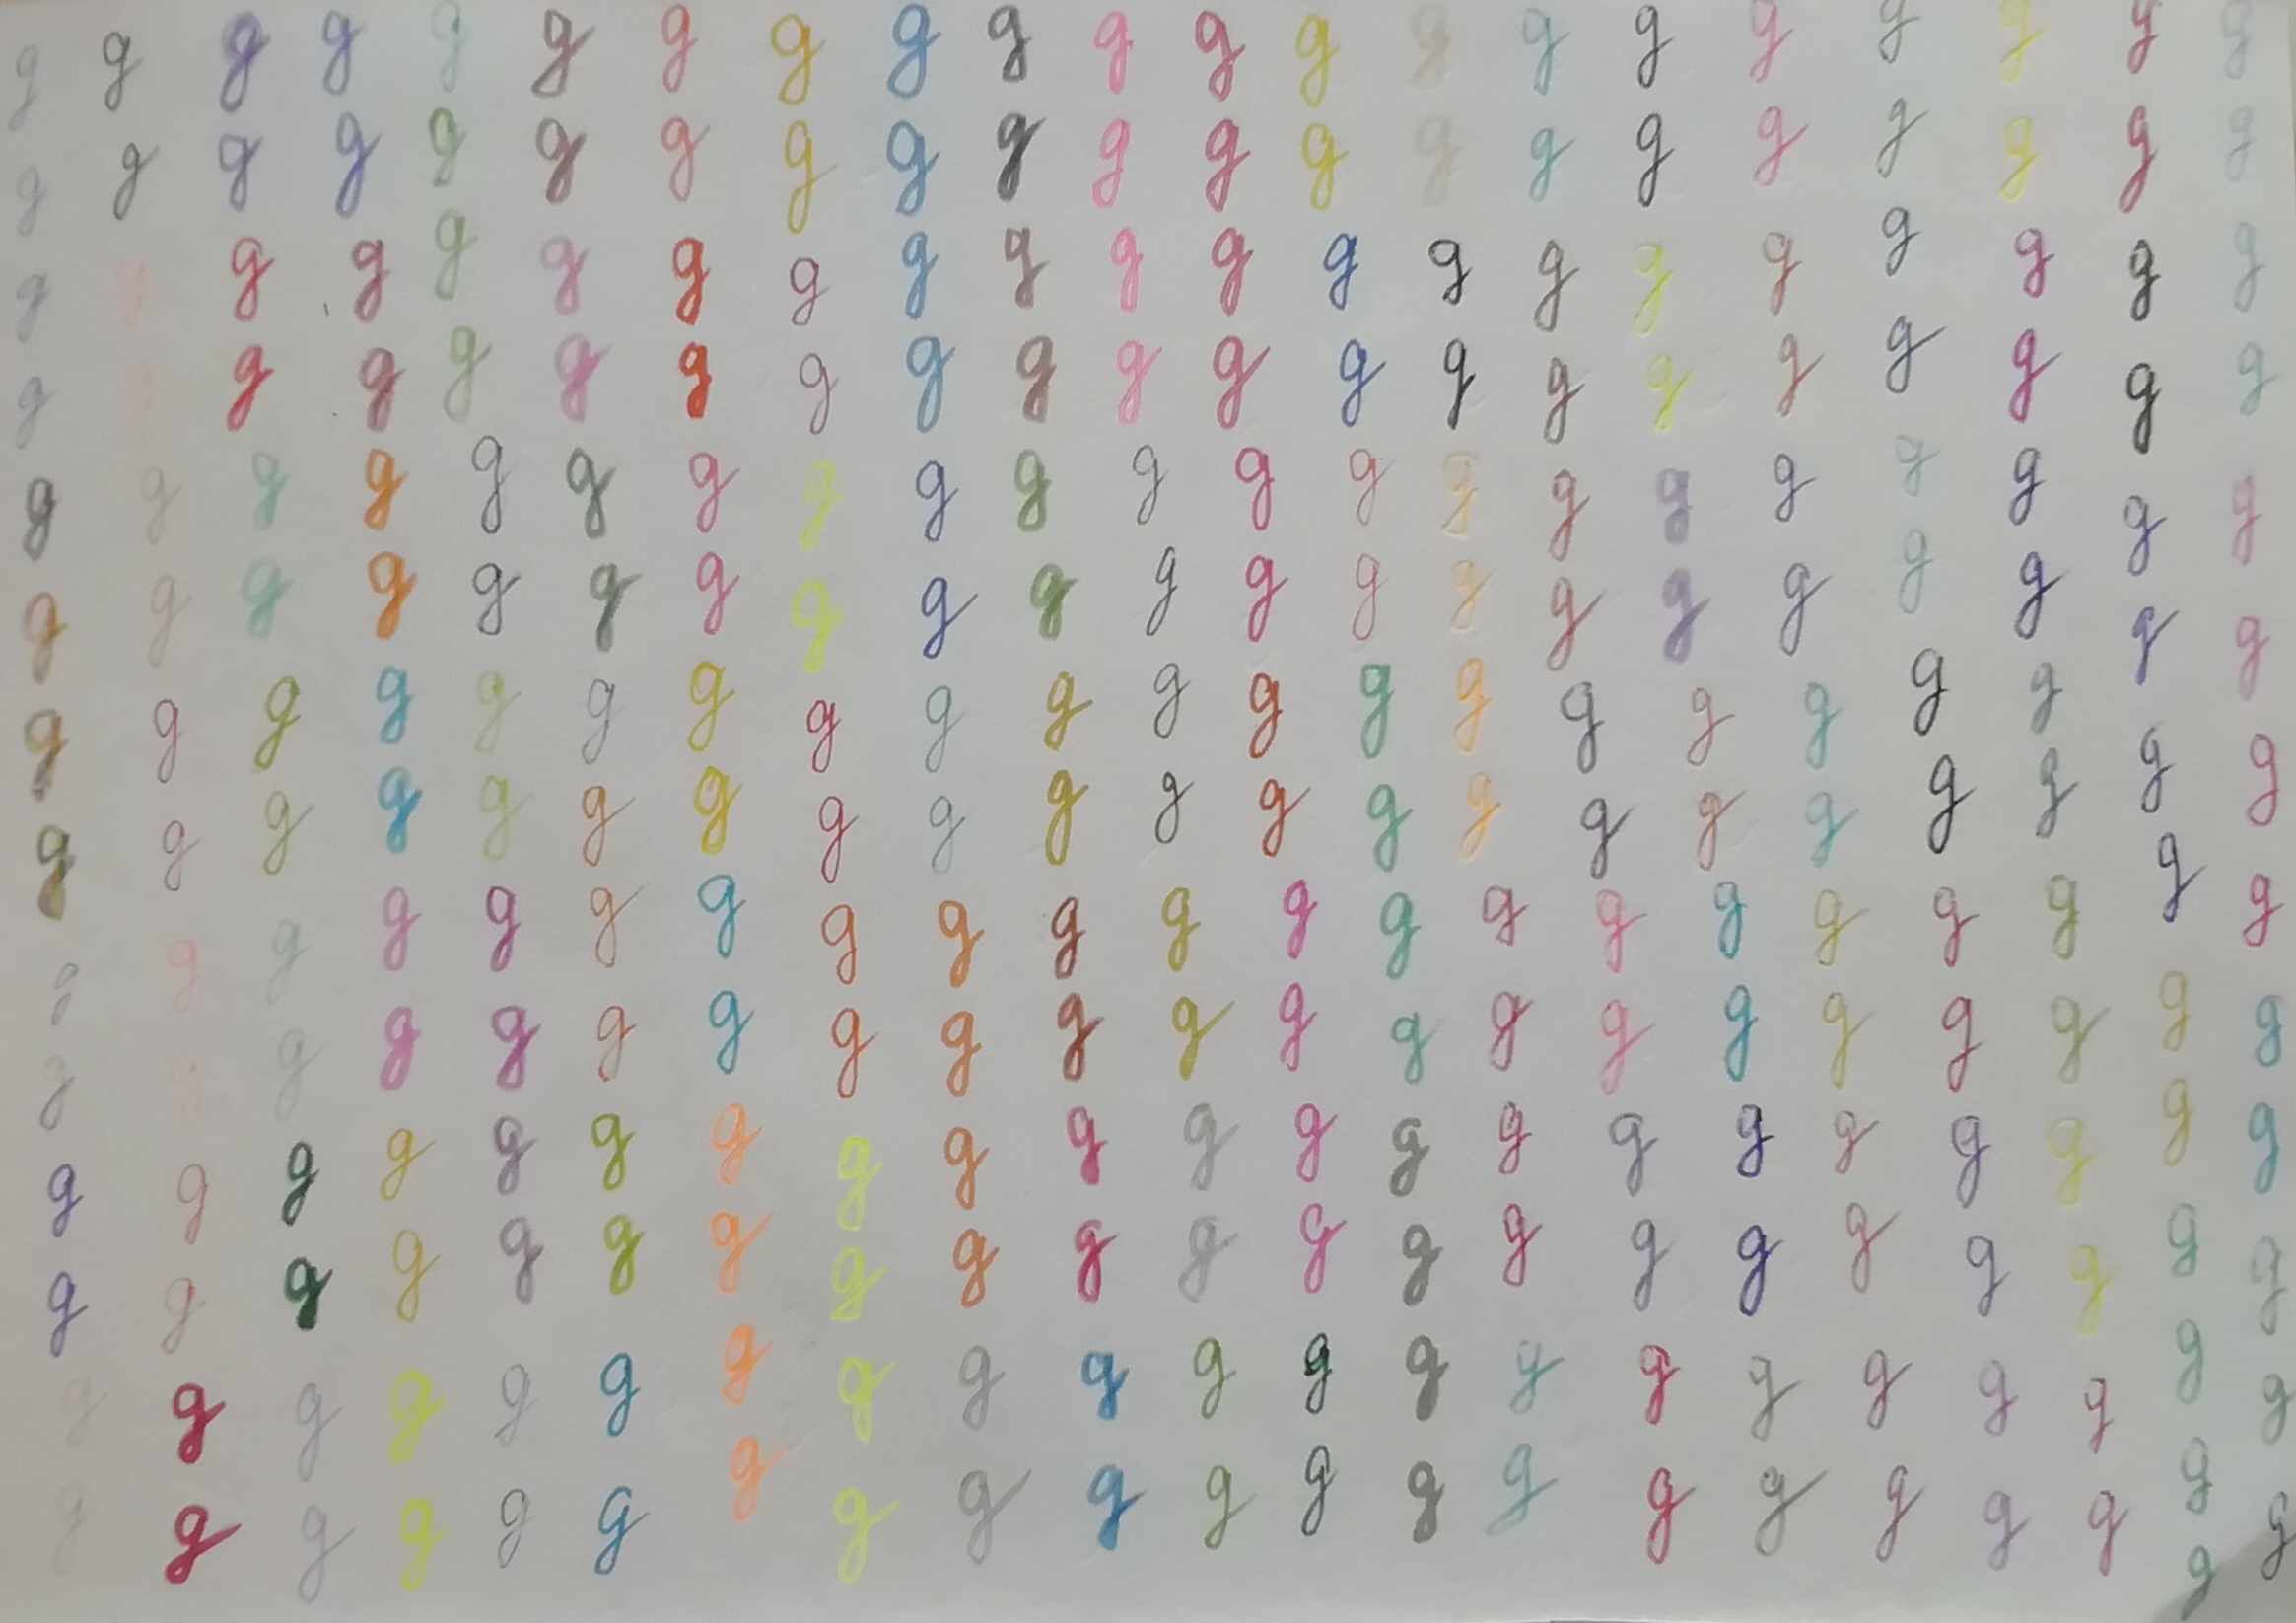 g g g g g g g g g g g g g g g g g g g g g
g g g g g g g g g g g g g g g g g g g g g
g g g g g g g g g g g g g g g g g g g g g
g g g g g g g g g g g g g g g g g g g g g
g g g g g g g g g g g g g g g g g g g g g
g g g g g g g g g g g g g g g g g g g g g
g g g g g g g g g g g g g g g g g g g g g
g g g g g g g g g g g g g g g g g g g g g
g g g g g g g g g g g g g g g g g g g g g
g g g g g g g g g g g g g g g g g g g g g
g g g g g g g g g g g g g g g g g g g g g
g g g g g g g g g g g g g g g g g g g g g
g g g g g g g g g g g g g g g g g g g g g
g g g g g g g g g g g g g g g g g g g g